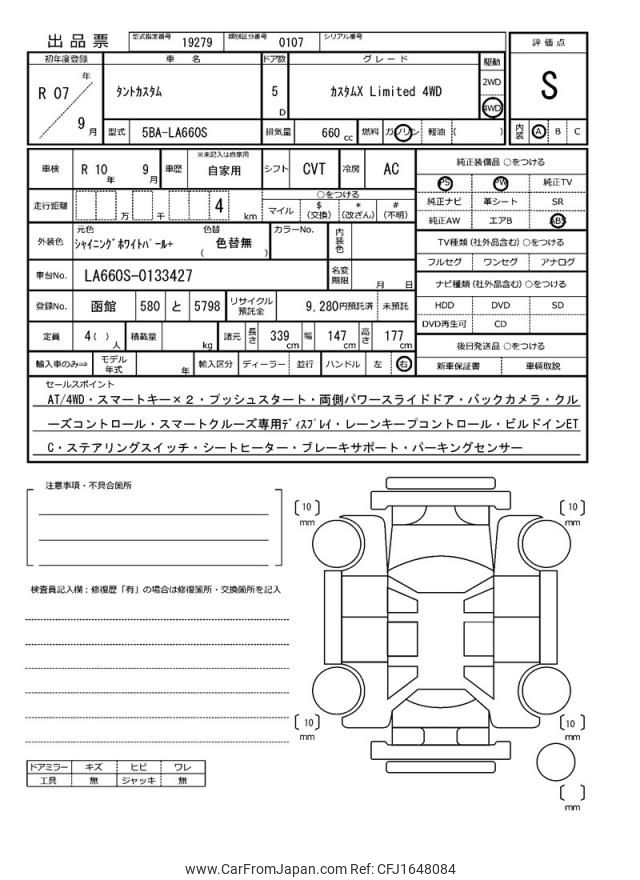 出品票
型式指定番号 19279 類別区分番号 0107 シリアル番号
評価点
初年度登録 車名 ドア数 グレード 駆動
R 07 年 9 月
タントカスタム 5 D カスタムX Limited 4WD
2WD
4WD
S
型式 5BA-LA660S 排気量 660 cc 燃料 ガソリン 軽油 ( )
内装 A B C
車検 R 10 年 9 月 車歴 ※未記入は自家用 自家用 シフト CVT 冷房 AC
走行距離 万 千 4 km
○をつける
マイル $ (交換) * (改ざん) # (不明)
外装色 元色 シャイニングホワイトパール+ 色替 ( 色替無 ) カラーNo. 内装色
車台No. LA660S-0133427 名変期限 月 日
登録No. 函館 580 と 5798 リサイクル預託金 9,280円預託済 未預託
定員 4 ( ) 人 積載量 kg 諸元 長さ 339 cm 幅 147 cm 高さ 177 cm
輸入車のみ⇒ モデル年式 年 輸入区分 ディーラー 並行 ハンドル 左 右
純正装備品 ○をつける
PS PW 純正TV
純正ナビ 革シート SR
純正AW エアB ABS
TV種類 (社外品含む) ○をつける
フルセグ ワンセグ アナログ
ナビ種類 (社外品含む) ○をつける
HDD DVD SD
DVD再生可 CD
後日発送品 ○をつける
新車保証書 車輌取説
セールスポイント
AT/4WD・スマートキー×2・プッシュスタート・両側パワースライドドア・バックカメラ・クル
ーズコントロール・スマートクルーズ専用ディスプレイ・レーンキープコントロール・ビルドインET
C・ステアリングスイッチ・シートヒーター・ブレーキサポート・パーキングセンサー
注意事項・不具合箇所
検査員記入欄：修復歴「有」の場合は修復箇所・交換箇所を記入
[ 10 ] mm
[ 10 ] mm
[ 10 ] mm
[ 10 ] mm
[ ] mm
ドアミラー キズ ヒビ ワレ
工具 無 ジャッキ 無
www.CarFromJapan.com Ref: CFJ1648084